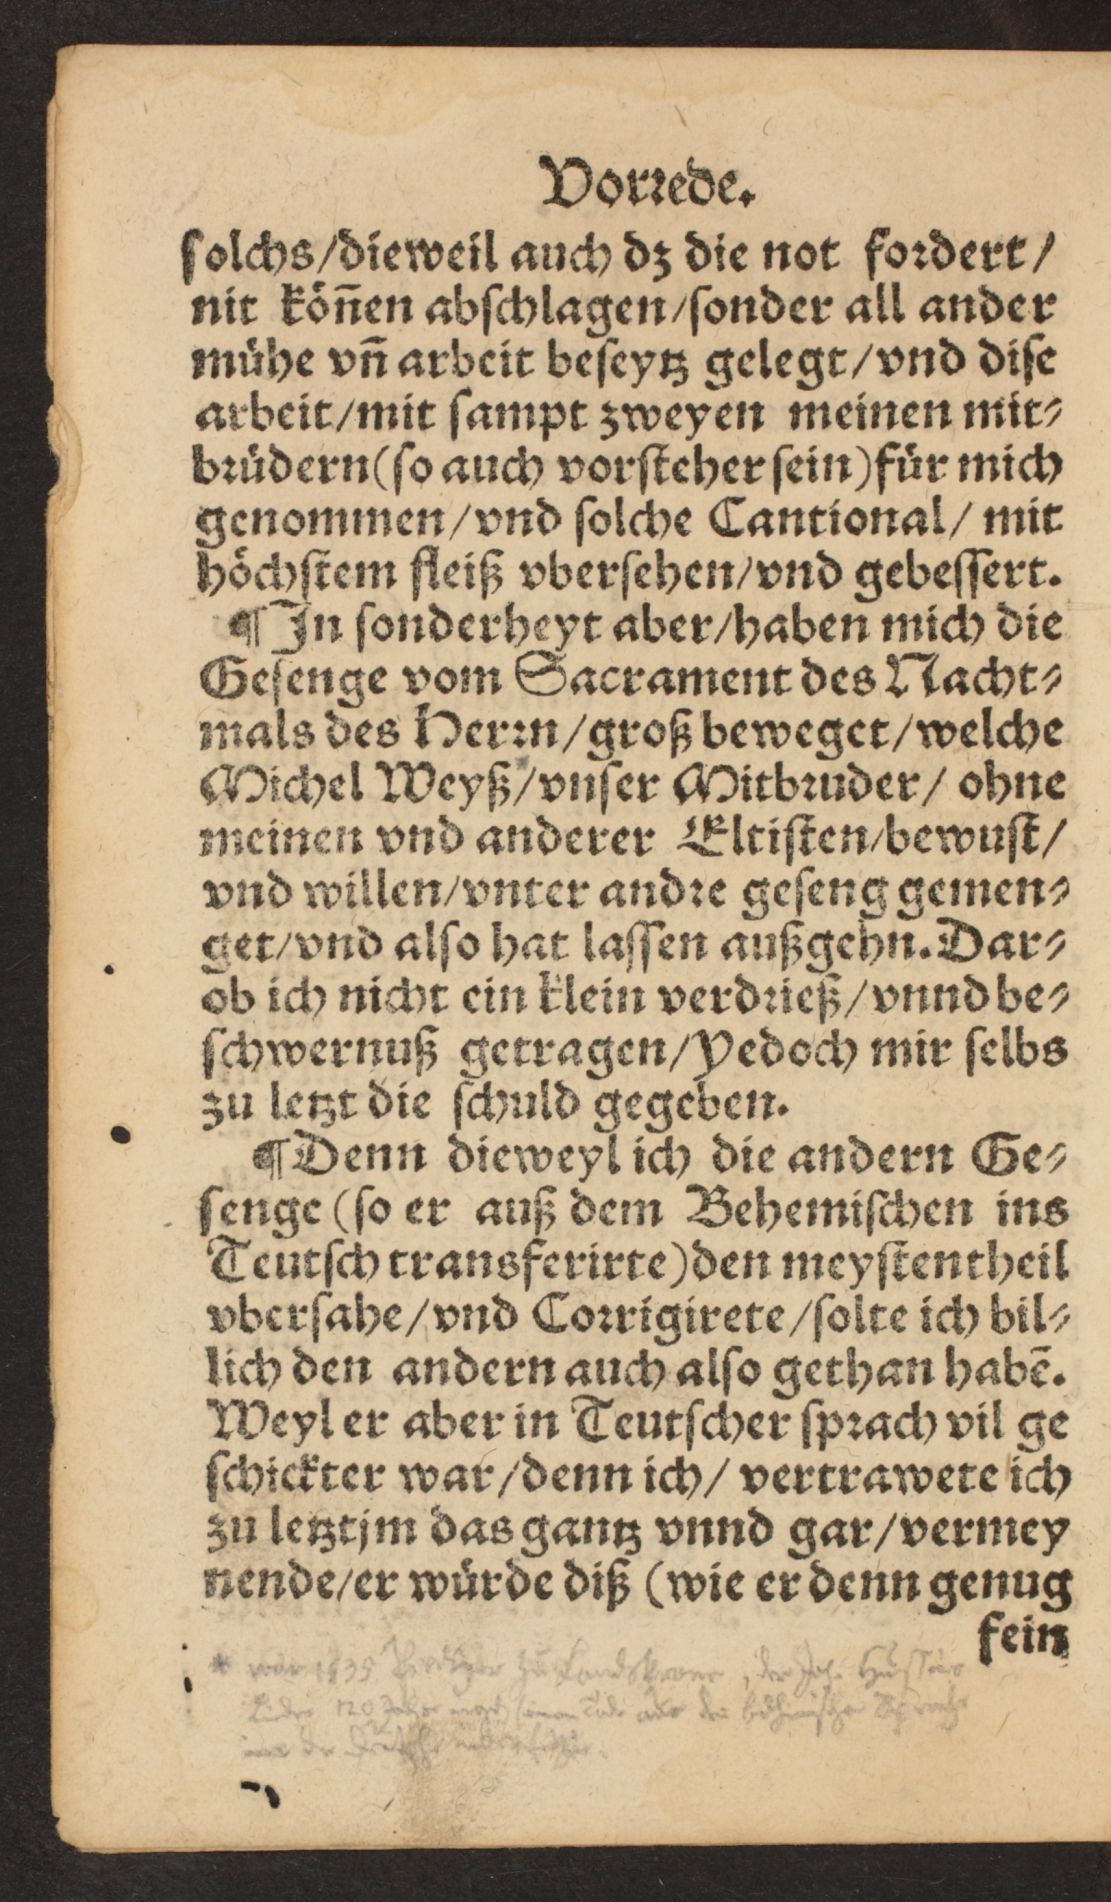 Vorrede.
solchs/dieweil auch dz die not fordert/
nit köñen abschlagen/sonder all ander
mühe vñ arbeit beseytz gelegt/vnd dise
arbeit/mit sampt zweyen meinen mit⸗
brüdern(so auch vorsteher sein)für mich
genommen/vnd solche Cantional/ mit
höchstem fleiß vbersehen/vnd gebessert.
¶In sonderheyt aber/haben mich die
Gesenge vom Sacrament des Nacht⸗
mals des Herrn/groß beweget/welche
Michel Weyß/vnser Mitbruder/ ohne
meinen vnd anderer Eltisten/bewust/
vnd willen/vnter andre geseng gemen⸗
get/vnd also hat lassen außgehn.Dar⸗
ob ich nicht ein klein verdrieß/vnnd be⸗
schwernuß getragen/Yedoch mir selbs
zu letzt die schuld gegeben.
¶Denn dieweyl ich die andern Ge⸗
senge(so er auß dem Behemischen ins
Teutsch transferirte)den meystentheil
vbersahe/vnd Corrigirete/solte ich bil⸗
lich den andern auch also gethan habē.
Weyl er aber in Teutscher sprach vil ge
schickter war/denn ich/ vertrawete ich
zu letzt jm das gantz vnnd gar/vermey
nende/er würde diß (wie er denn genug
fein
* war 1535 Prediger zu Landskrone, der Joh. Hussens
Lieder 120 Jahre nach seinem Tode aus der böhmischen Sprache